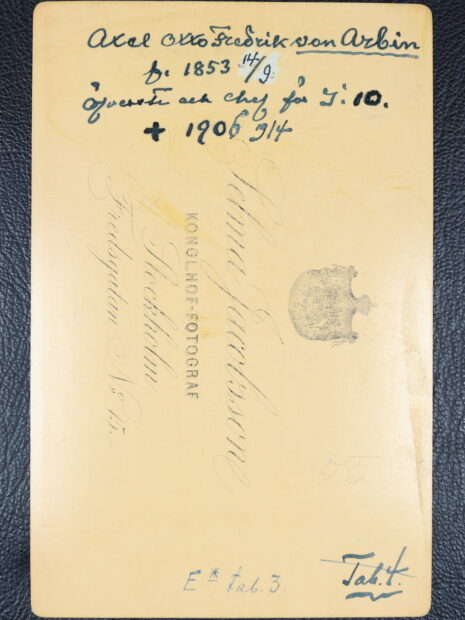 Axel Otto Fredrik von Arbin
f. 1853 14/9.
Öfverste och chef för I: 10.
+ 1906 9/4
Selma Jacobsson
KONGL HOF-FOTOGRAF
Stockholm
Fredsgatan No 15.
E* tab. 3.
Tab. 4.